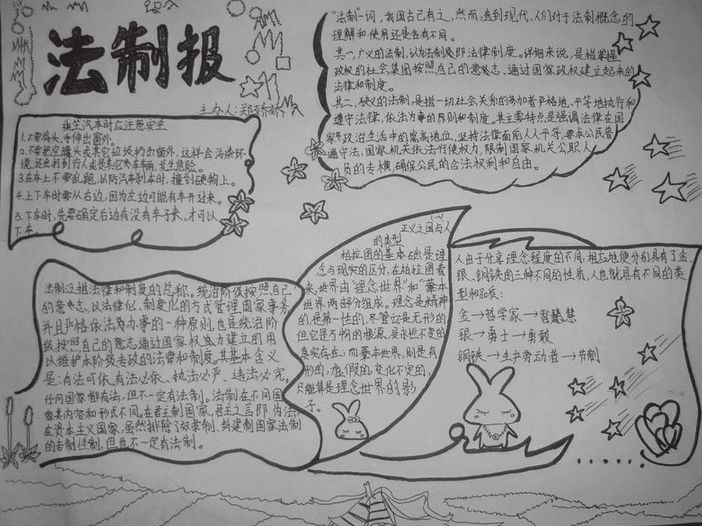 法制报
主办人:郑娇娇
乘坐汽车时应注意安全
1.不要将头、手伸出窗外。
2.不要把空罐头或其它垃圾扔出窗外,这样会污染环
境,还会打到行人或是其它汽车车辆,发生危险。
3.在车上不要乱跑,以防汽车刹车时,撞到硬物上。
4.上下车时要从右边,因为左边可能有车开过来。
5.下车时,先要确定后边有没有车子来,才可以
下车。
“法制”一词,我国古已有之,然而,直到现代,人们对于法制概念的
理解和使用还是各有不同。
其一,广义的法制,认为法制即法律制度。详细来说,是指掌握
政权的社会集团按照自己的意志,通过国家政权建立起来的
法律和制度。
其二,狭义的法制,是指一切社会关系的参加者严格地、平等地执行和
遵守法律,依法办事的原则和制度。其主要特点是强调法律在国
家政治生活中的崇高地位,坚持法律面前人人平等,要求公民普
遍守法,国家机关依法行使权力,限制国家机关公职人
员的专横,确保公民的合法权利和自由。
法制是指法律和制度的总称。统治阶级按照自己
的意志,以法律化、制度化的方式管理国家事务,
并且严格依法办事的一种原则,也是统治阶
级按照自己的意志通过国家权力建立的用
以维护本阶级专政的法律和制度,其基本含义
是:有法可依、有法必依、执法必严、违法必究,
任何国家都有法,但不一定有法制。法制在不同国
家其内容和形式不同,在君主制国家,君主之言即为法,
在资本主义国家,虽然排除了奴隶制、封建制国家法制
的专制性制,但也不一定有法制。
正义之国与人
的类型
柏拉图的基本立场是理
念与现实的区分,在柏拉图看
来,世界由“理念世界”和“
世界”两部分组成。理念是精神
的,是第一性的,尽管它是无形的
但它是万物的根源,是永恒不变的
真实存在;而
形的、虚假的、变化不定的,
只能算是理念世界的影
子。
人由于分享理念程度的不同,相应地便分别具有了金、
银、铜铁的三种不同的性质,人也就具有不同的类
型和品质:
金→哲学家→智慧
银→勇士→勇敢
铜铁→生产劳动者→节制